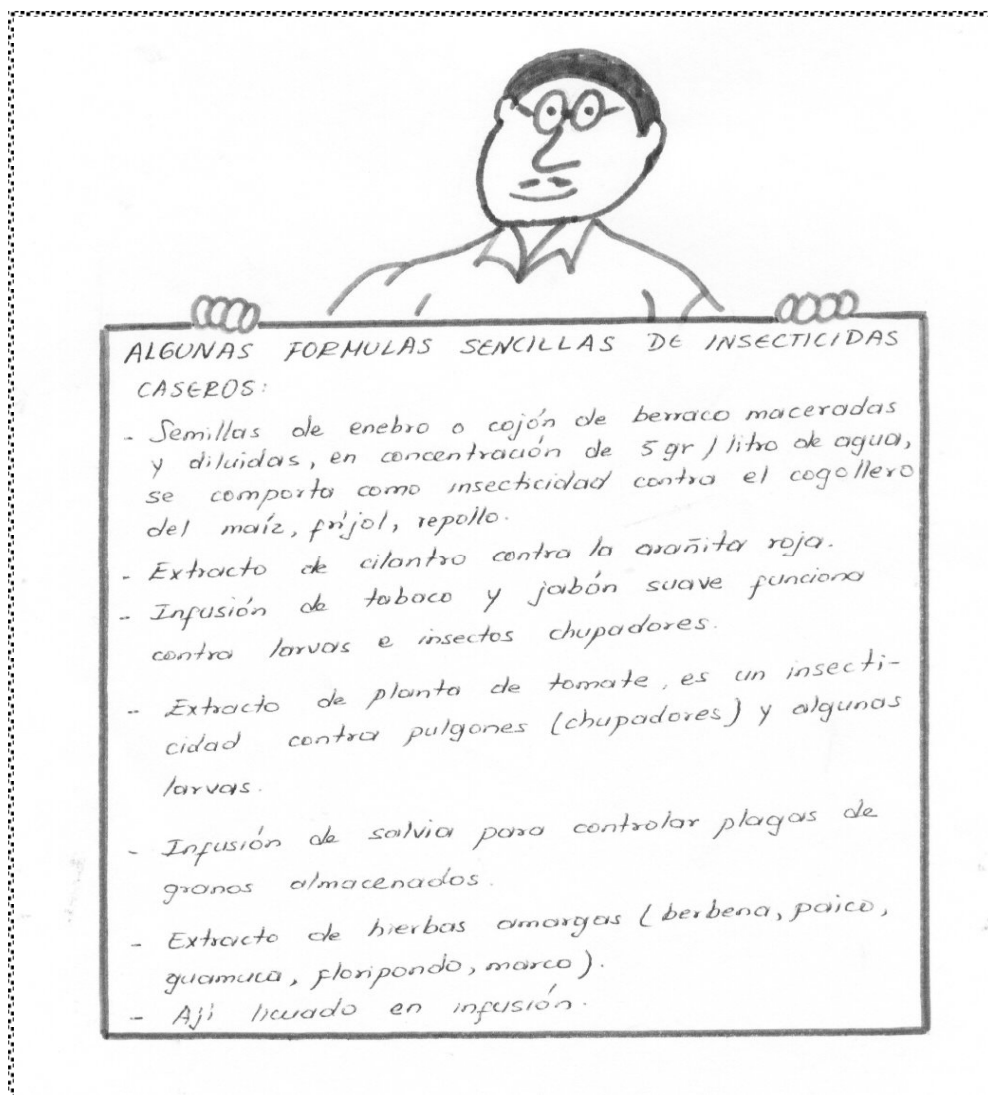 ALGUNAS FORMULAS SENCILLAS DE INSECTICIDAS
CASEROS:
- Semillas de enebro o cojón de berraco maceradas
y diluidas, en concentración de 5 gr / litro de agua,
se comporta como insecticidad contra el cogollero
del maíz, fríjol, repollo.
- Extracto de cilantro contra la arañita roja.
- Infusión de tabaco y jabón suave funciona
contra larvas e insectos chupadores.
- Extracto de planta de tomate, es un insecti-
cidad contra pulgones (chupadores) y algunas
larvas.
- Infusión de salvia para controlar plagas de
granos almacenados.
- Extracto de hierbas amargas (berbena, paico,
guamuca, floripondo, marco).
- Ají licuado en infusión.